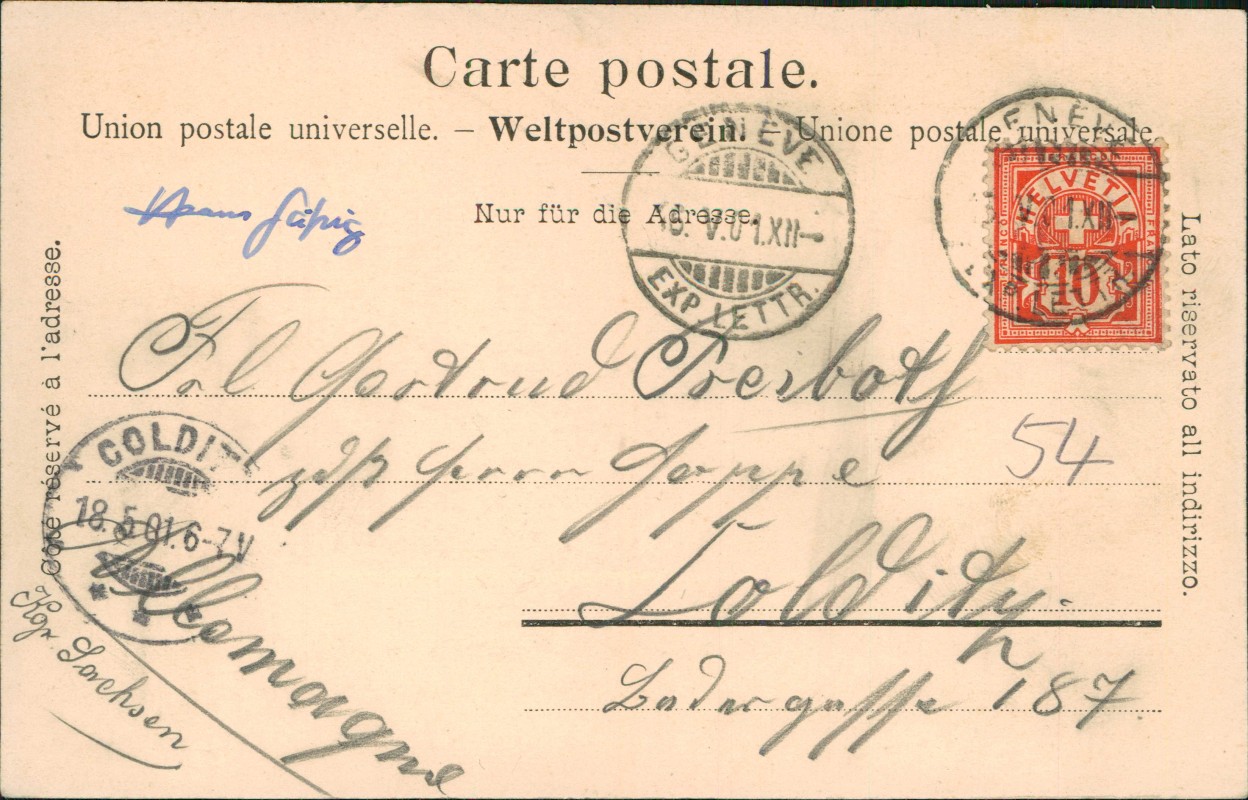 Carte postale.
Union postale universelle. – Weltpostverein. – Unione postale universale
Nur für die Adresse.
Côté réservé à l'adresse.
Lato riservato all indirizzo.
GENÈVE
V.01.XII–
EXP. LETTR.
GENÈVE
XII
HELVETIA
FRANCO
FRANCO
10
Frl Gertrud
54
Herrn
Colditz.
187
COLDITZ
18.5.01.6-7.V
Allemagne
Kgr. Sachsen